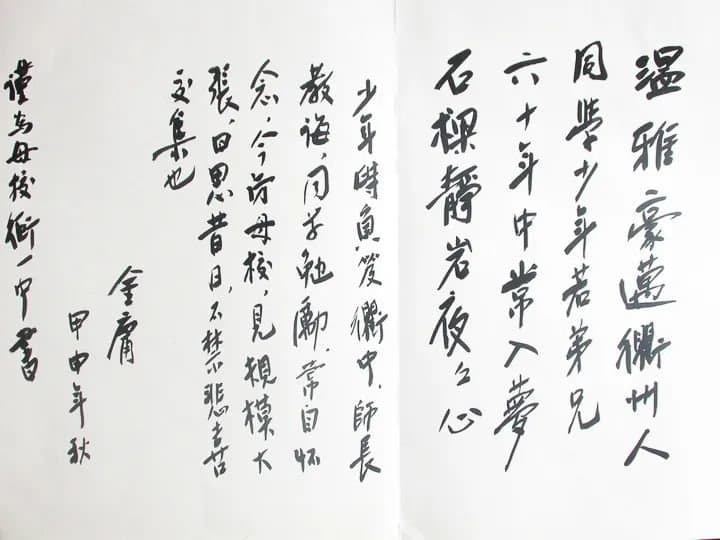 溫雅豪邁衢州人
同學少年若弟兄
六十年中常入夢
石樑靜岩夜夜心
少年時負笈衢中，師長
教誨，同学勉勵，常自怀
念，今访母校，見規模大
張，日思昔日，不禁悲喜
交集也
金庸
甲申年秋
謹为母校衢一中書